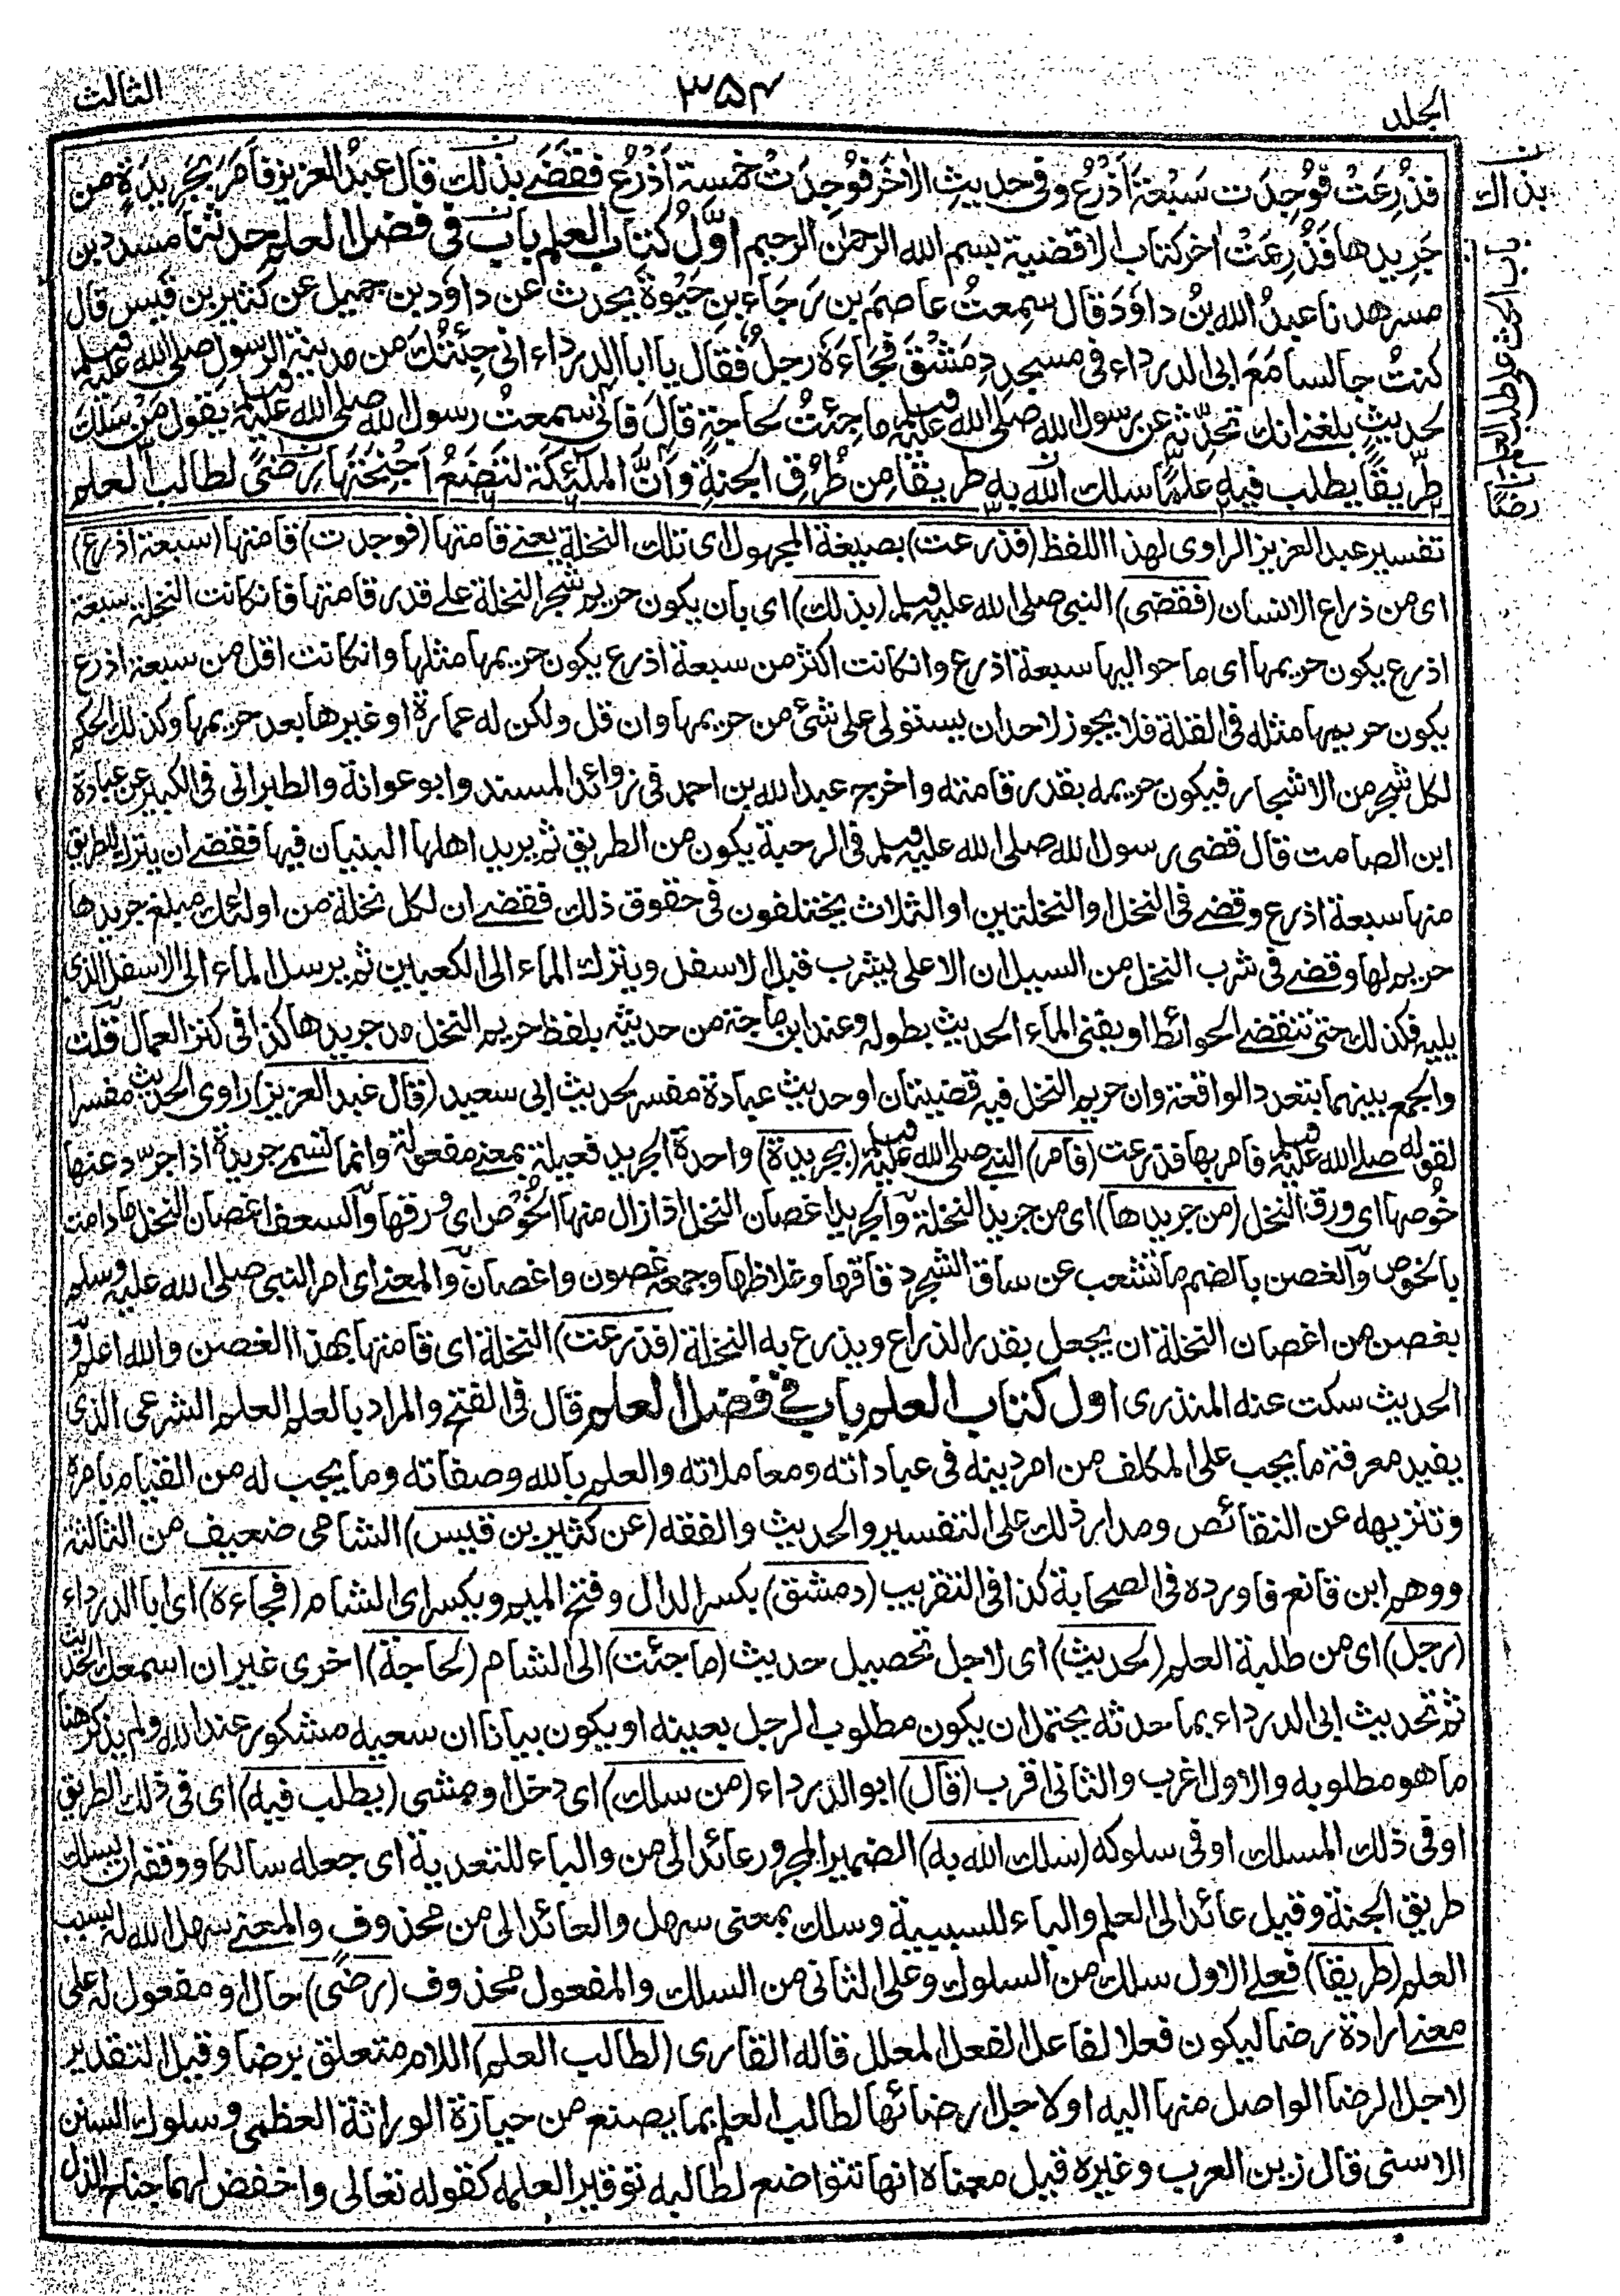 الجلد
٣٥٤
الثالث
فذُرِعَتْ فوُجِدَت سَبْعَةَ اَذْرُعٍ وفى حديثِ الاٰخَرِ فوُجِدَتْ خمسةَ اَذْرُعٍ فقَضَے بذٰلك قال عبدُ العزيزِ فاَمَرَ بجَرِيدَةٍ من
جَرِيدِها فَذُرِعَتْ اٰخر كتاب الاقضية بسم الله الرحمٰن الرحيم اوّلُ كتاب العلم بابٌ فى فضل العلم حدثنا مسدد بن
مسرهدنا عبدُ الله بنُ داوَدَ قال سمِعتُ عاصمَ بن رَجَاءِ بنِ حَيْوةَ يحدث عن داوَد بن جميل عن كثير بن قيس قال
كنتُ جالسا مَعَ ابى الدرداء فى مسجدِ دِمَشْقَ فجَاءَهٗ رجلٌ فقال يا ابا الدرداء انى جِئتُكَ من مدينةِ الرسول صلى الله عليه وسلم
لحديثٍ بلغنے انك تحدِّثه عن رسول الله صلى الله عليه وسلم ما جِئتُ لحاجةٍ قال فانى سمعتُ رسول الله صلى الله عليه وسلم يقول مَنْ سَلَكَ
طَرِيقًا يطلب فيه علمًا سلك الله به طريقًا مِن طُرُقِ الجنةِ وَاَنَّ الملٰئكةَ لَتَضَعُ اَجْنِحَتَهَا رِضًى لطالب العلم
بذاك
باب الحث على طلب العلم
رضًا
تفسير عبد العزيز الراوى لهذا اللفظ (فذرعت) بصيغة المجهول اى تلك النخلة يعنے قامتها (فوجدت) قامتها (سبعة اذرع)
اى من ذراع الانسان (فقضى) النبى صلى الله عليه وسلم (بذلك) اى بان يكون حريم شجر النخلة علے قدر قامتها فان كانت النخلة سبعة
اذرع يكون حريمها اى ما حواليها سبعة اذرع وان كانت اكثر من سبعة اذرع يكون حريمها مثلها وان كانت اقل من سبعة اذرع
يكون حريمها مثله فى القلة فلا يجوز لاحد ان يستولى على شئ من حريمها وان قل ولكن له عمارة او غيرها بعد حريمها وكذلك الحكم
لكل شجر من الاشجار فيكون حريمه بقدر قامته واخرج عبد الله بن احمد فى زوائد المسند وابو عوانة والطبرانى فى الكبير عن عبادة
ابن الصامت قال قضى رسول الله صلى الله عليه وسلم فى الرحبة يكون من الطريق ثم يريد اهلها البنيان فيها فقضے ان يترك للطريق
منها سبعة اذرع وقضے فى النخل او النخلتين او الثلاث يختلفون فى حقوق ذلك فقضے ان لكل نخلة من اولئك مبلغ جريدها
حريم لها وقضے فى شرب النخل من السيل ان الاعلى يشرب قبل الاسفل ويترك الماء الى الكعبين ثم يرسل الماء الى الاسفل الذى
يليه فكذلك حتى تنقضے الحوائط او يفنى الماء الحديث بطوله وعند ابن ماجة من حديثه بلفظ حريم النخل مد جريدها كذا فى كنز العمال قلت
والجمع بينهما بتعدد الواقعة وان حريم النخل فيه قضيتان او حديث عبادة مفسر لحديث ابى سعيد (قال عبد العزيز) راوى الحديث مفسرا
لقوله صلے الله عليه وسلم فامر بها فذرعت (فامر) النبے صلى الله عليه وسلم (بجريدة) واحدة الجريد فعيلة بمعنے مفعولة وانما تسمى جريدة اذا جرّد عنها
خُوصها اى ورق النخل (من جريدها) اى من جريد النخلة وآلجريد اغصان النخل اذا زال منها الخُوْص اى ورقها وآلسعف اغصان النخل ما دامت
بالخوص وآلغصن بالضم ما تشعب عن ساق الشجر دقاقها وغلاظها وجمعه غصون واغصان وآلمعنے اى امر النبى صلى الله عليه وسلم
بغصن من اغصان النخلة ان يجعل بقدر الذراع ويذرع به النخلة (فذرعت) النخلة اى قامتها بهذا الغصن والله اعلم و
الحديث سكت عنه المنذرى اول كتاب العلم باب فے فضل العلم قال فى الفتح والمراد بالعلم العلم الشرعى الذى
يفيد معرفة ما يجب على المكلف من امر دينه فى عباداته ومعاملاته والعلم بالله وصفاته وما يجب له من القيام بامره
وتنزيهه عن النقائص ومدار ذلك على التفسير والحديث والفقه (عن كثير بن قيس) الشامى ضعيف من الثالثة
ووهم ابن قانع فاورده فى الصحابة كذا فى التقريب (دمشق) بكسر الدال وفتح الميم ويكسر اى الشام (فجاءه) اى ابا الدرداء
(رجل) اى من طلبة العلم (لحديث) اى لاجل تحصيل حديث (ما جئت) الى الشام (لحاجة) اخرى غير ان اسمعك الحديث
ثم تحديث ابى الدرداء بما حدثه يحتمل ان يكون مطلوب الرجل بعينه او يكون بيانا ان سعيه مشكور عند الله ولم يذكر هنا
ما هو مطلوبه والاول اغرب والثانى اقرب (قال) ابو الدرداء (من سلك) اى دخل او مشى (يطلب فيه) اى فى ذلك الطريق
او فى ذلك المسلك او فى سلوكه (سلك الله به) الضمير المجرور عائد الى من والباء للتعدية اى جعله سالكا ووفقه ان يسلك
طريق الجنة وقيل عائد الى العلم والباء للسببية وسلك بمعنى سهل والعائد الى من محذوف والمعنے سهل الله له بسبب
العلم (طريقا) فعلے الاول سلك من السلوك وعلى الثانى من السلك والمفعول محذوف (رضًى) حال او مفعول له على
معنے ارادة رضا ليكون فعلا لفاعل الفعل المعلل قاله القارى (لطالب العلم) اللام متعلق برضا وقيل التقدير
لاجل الرضا الواصل منها اليه او لاجل ارضائها لطالب العلم بما يصنع من حيازة الوراثة العظمى وسلوك السنن
الاسنى قال زين العرب وغيره قيل معناه انها تتواضع لطالبه توقيرا لعلمه كقوله تعالى واخفض لهما جناح الذل